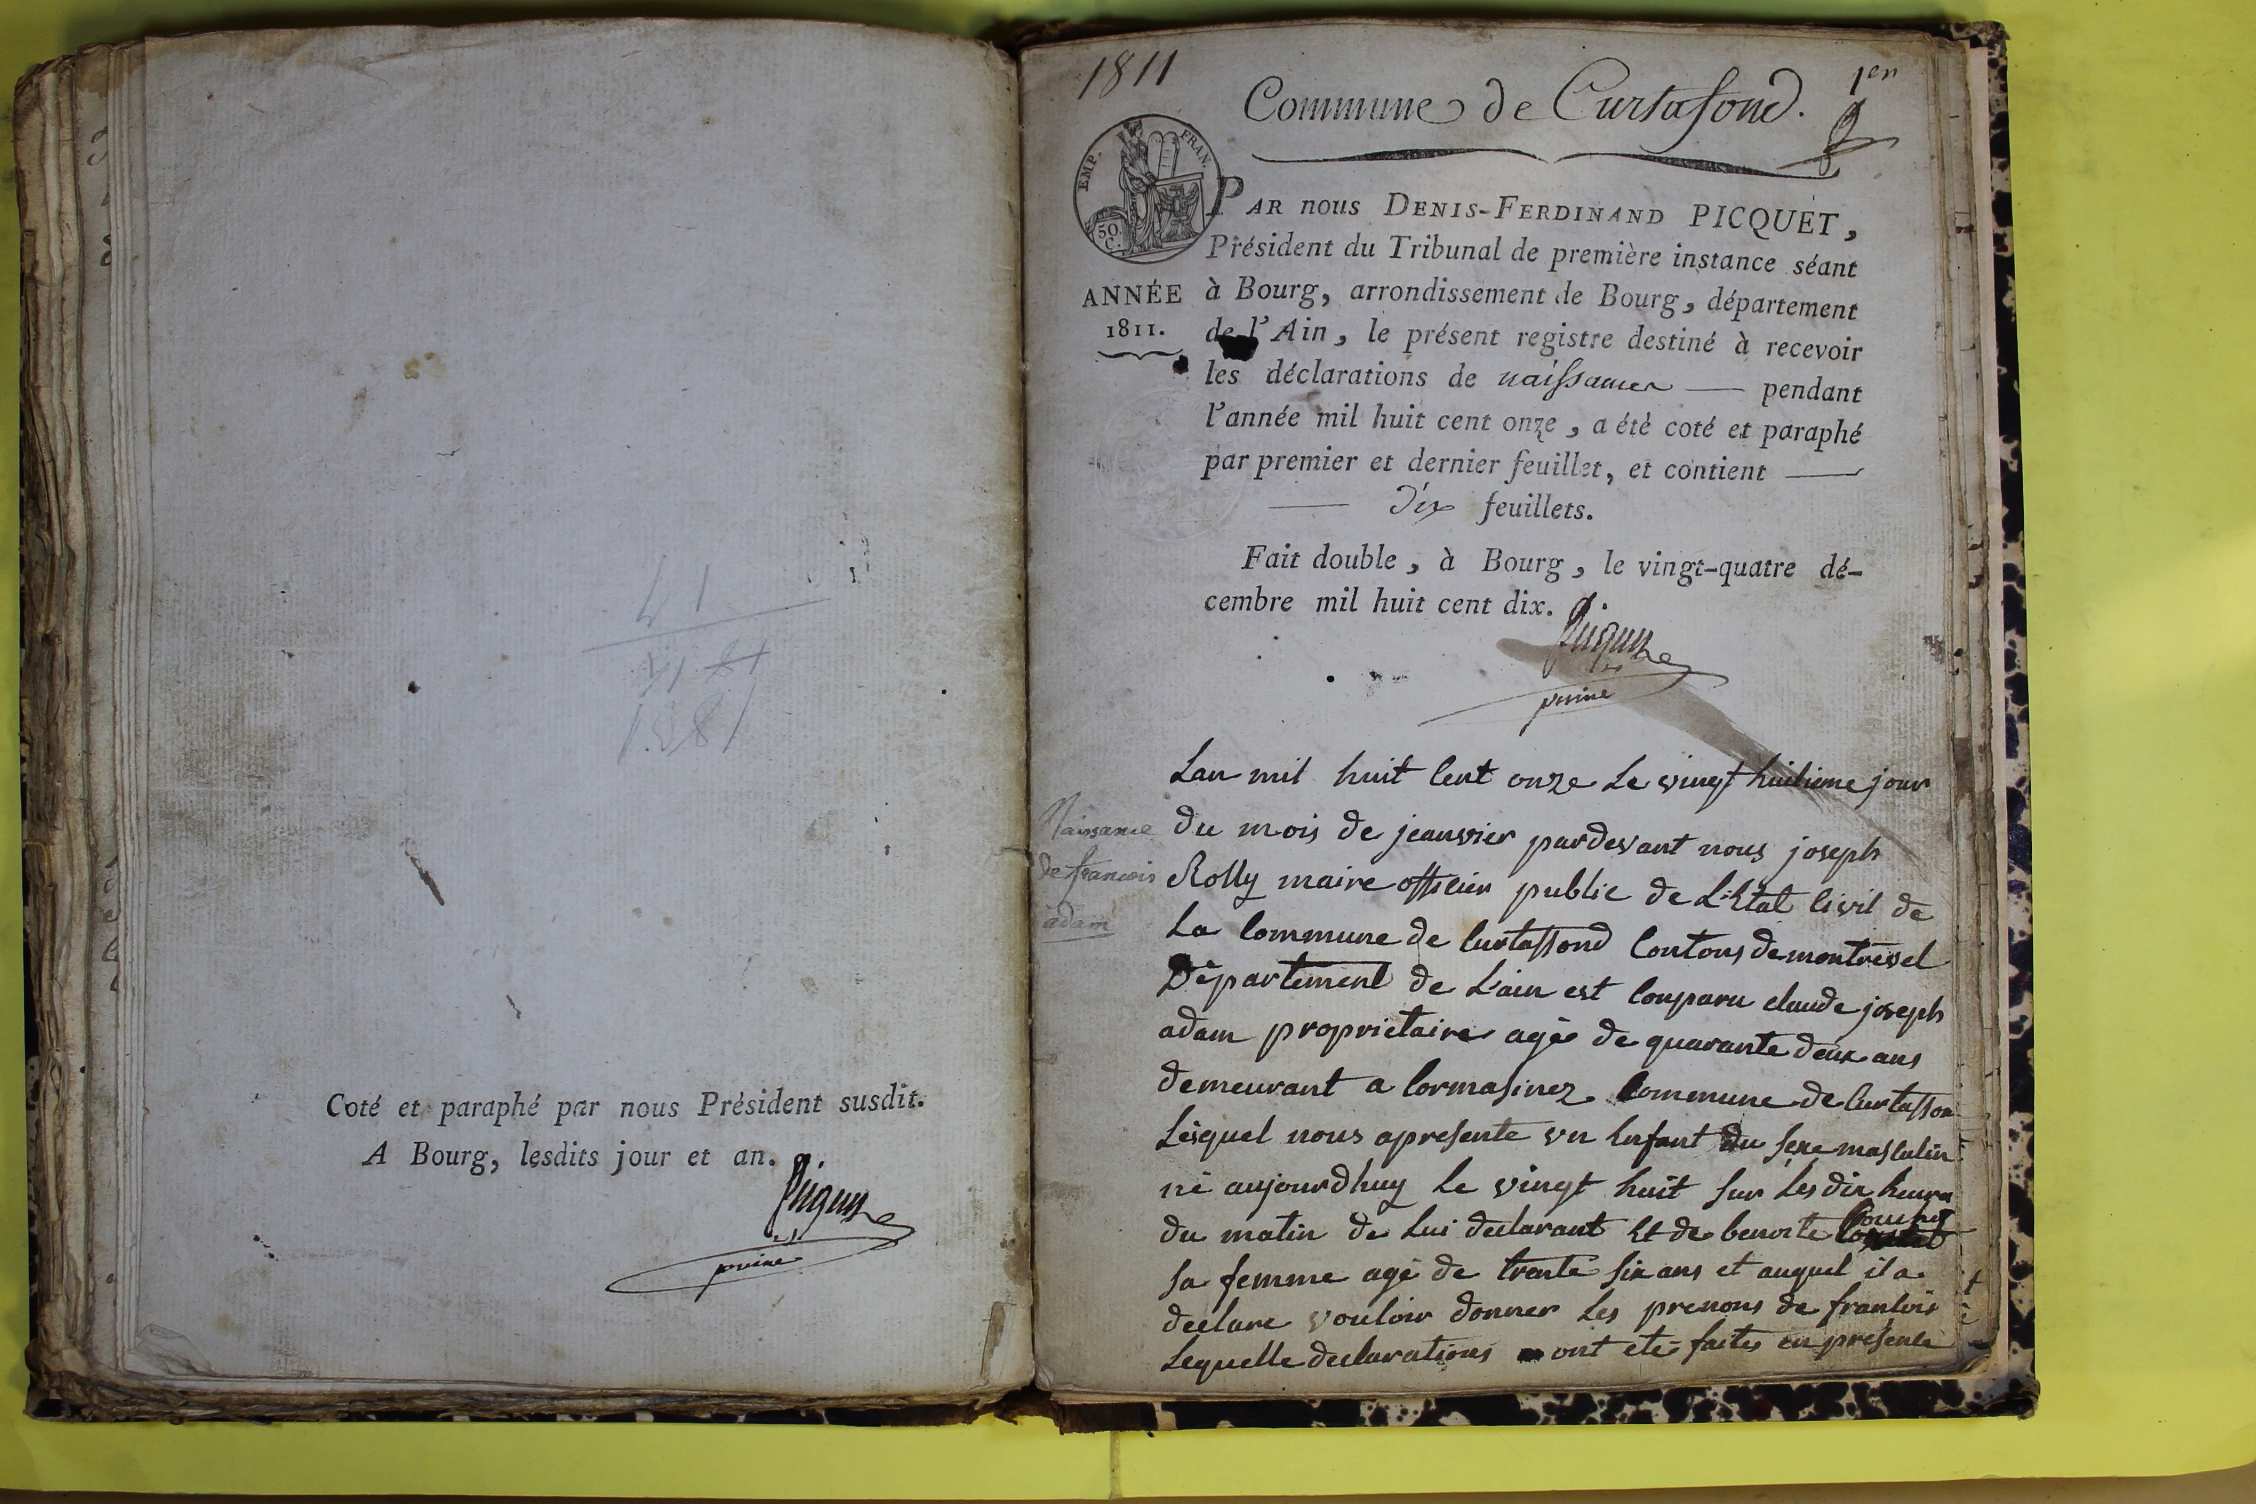 Coté et paraphé par nous Président susdit.
A Bourg, lesdits jour et an.
Picquet
1811
1er
Commune de Curtafond.
EMP. FRAN.
50. C.
ANNÉE
1811.
PAR nous DENIS-FERDINAND PICQUET,
Président du Tribunal de première instance séant
à Bourg, arrondissement de Bourg, département
de l'Ain, le présent registre destiné à recevoir
les déclarations de naissances — pendant
l'année mil huit cent onze, a été coté et paraphé
par premier et dernier feuillet, et contient —
— dix feuillets.
Fait double, à Bourg, le vingt-quatre dé-
cembre mil huit cent dix.
Picquet
Naissance
de francois
adam
Lan mil huit Cent onze Le vingt huitieme jour
du mois de jeanvier pardevant nous joseph
Rolly maire officier public de L'Etat Civil de
La Commune de Curtaffond Contons de montrevel
Département de L'ain est Conparu claude joseph
adam proprietaire agé de quarante deux ans
demeurant a Cormasinez Commune de Curtaffon
Lesquel nous apresente un Enfant du sexe masculin
né aujourdhuy le vingt huit sur Les dix heura
du matin de Lui declarant Et de benoite
sa femme agé de trente six ans et auquel il a
declare vouloir donner Les prenons de francois
Lequelle declarations ont eté faites en presence